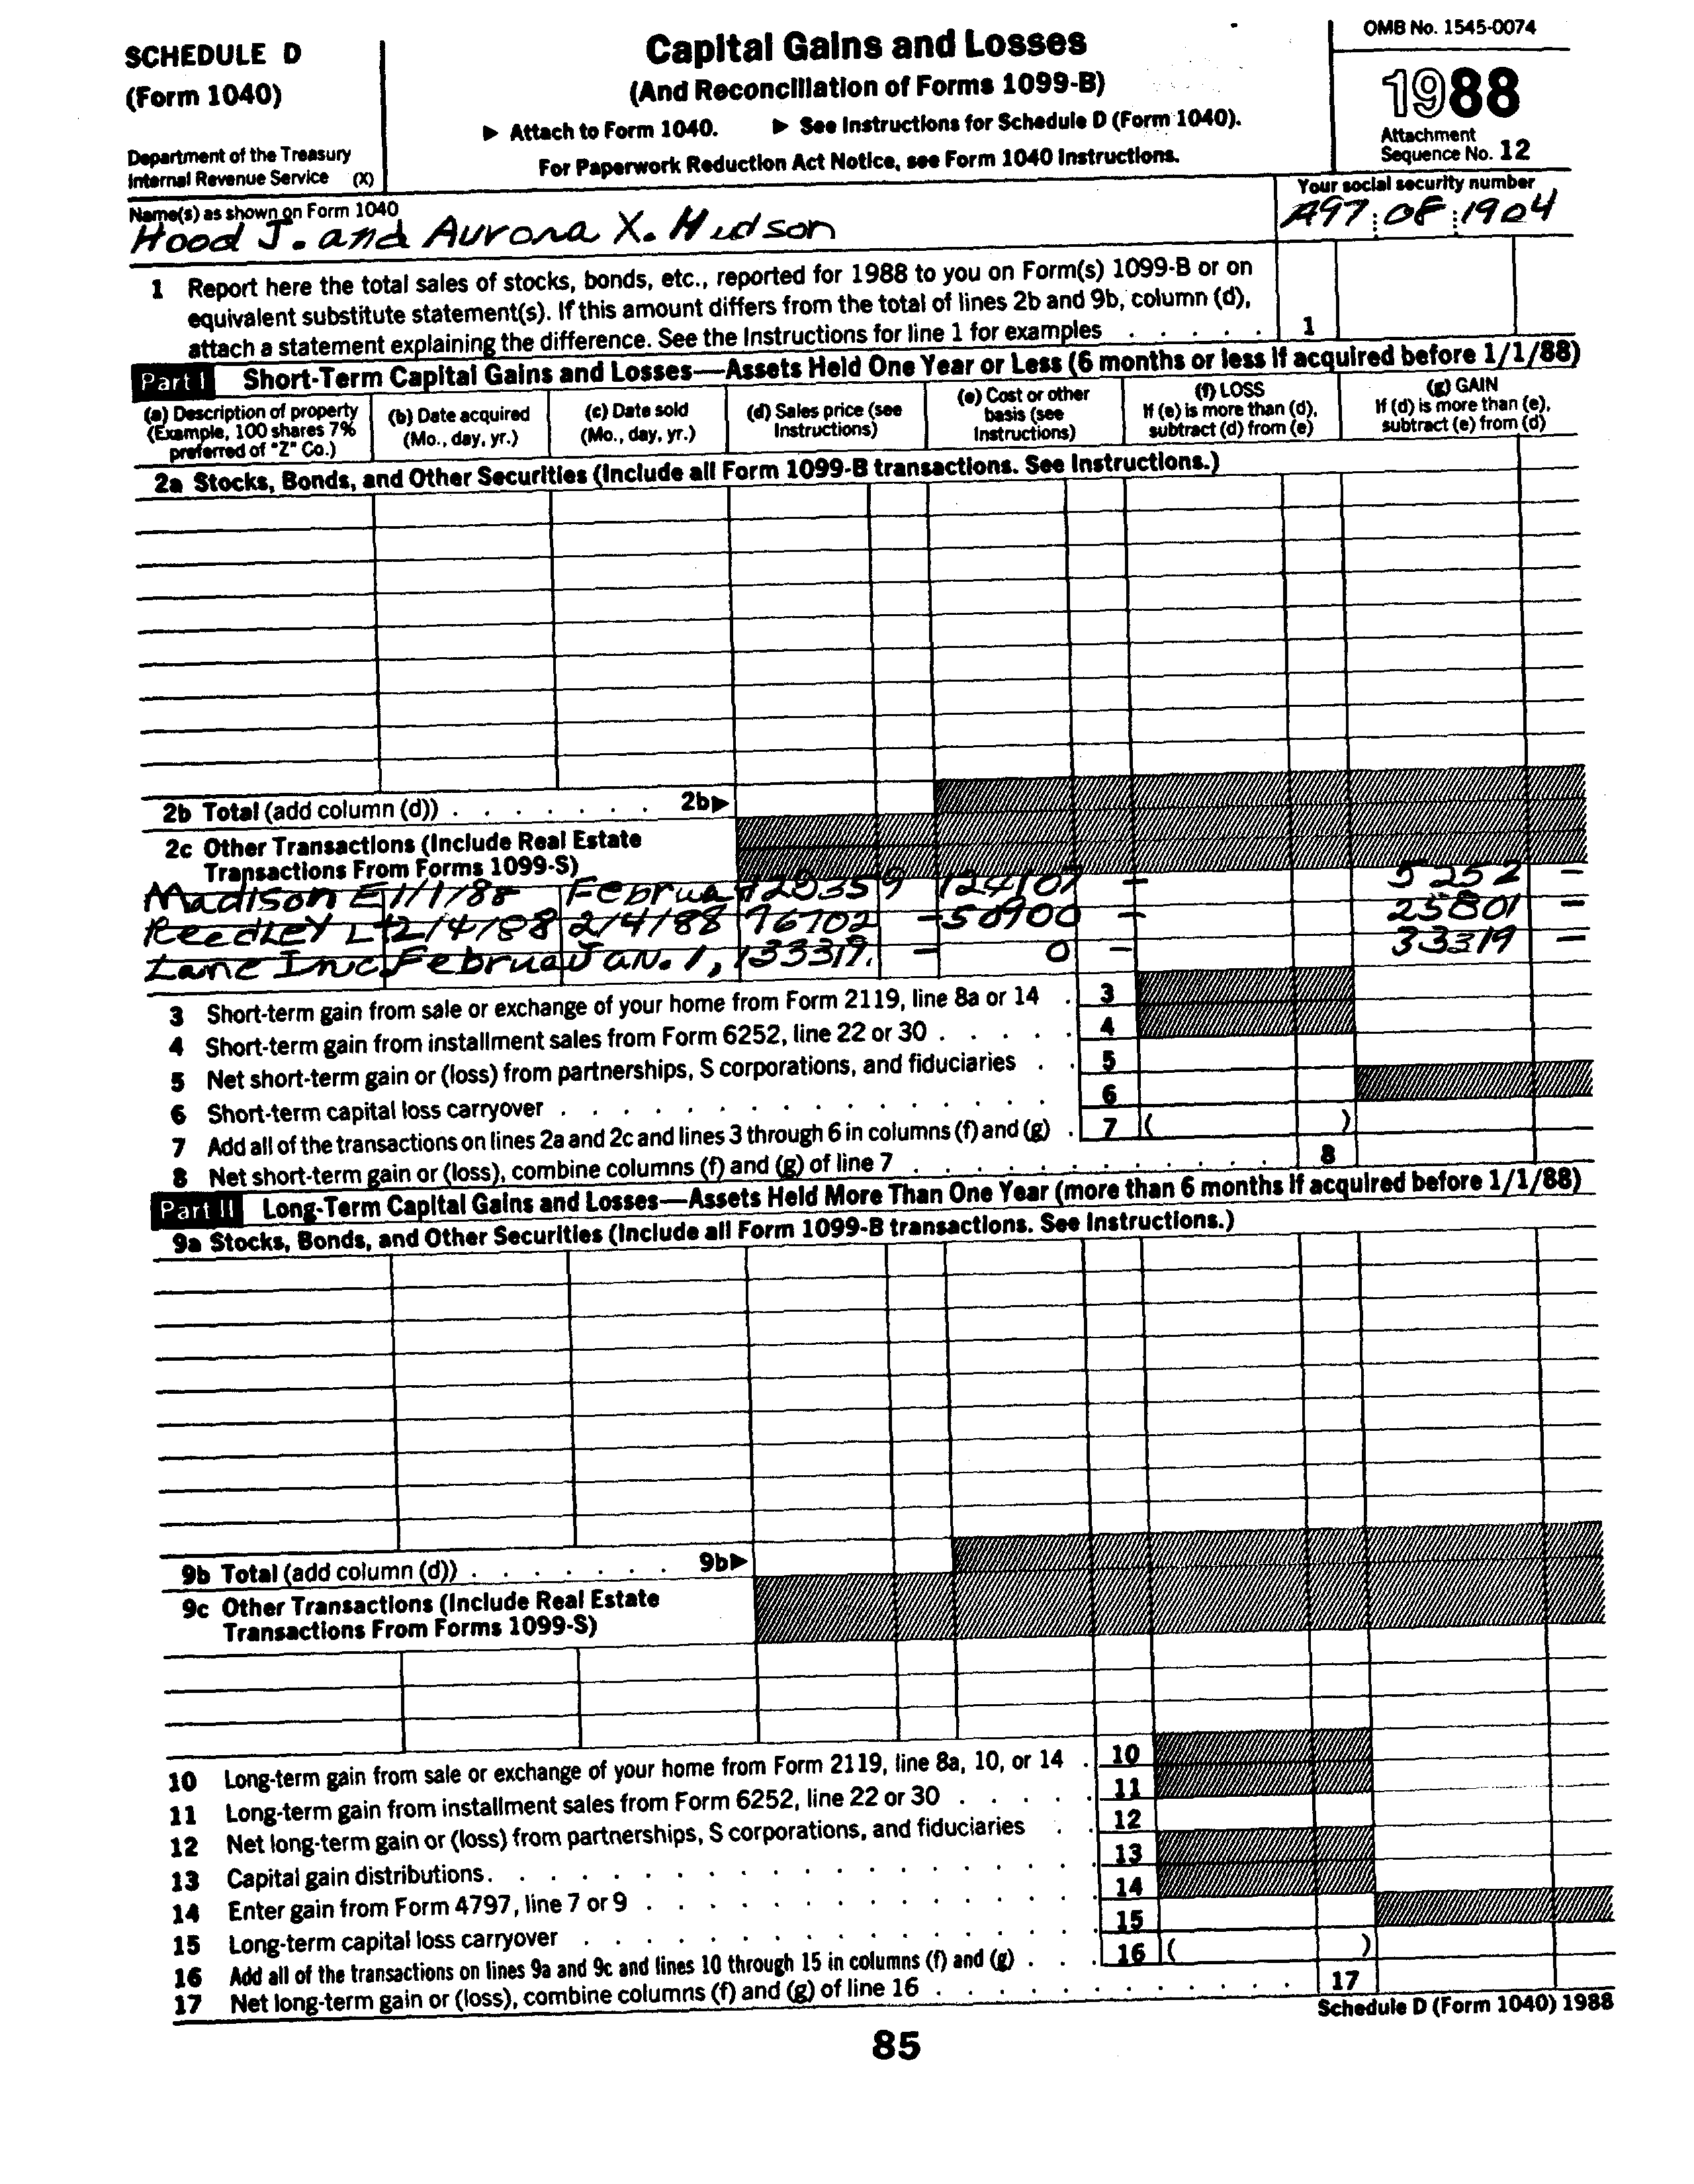 SCHEDULE D
(Form 1040)
Department of the Treasury
Internal Revenue Service (X)
Capital Gains and Losses
(And Reconciliation of Forms 1099-B)
▶ Attach to Form 1040. ▶ See Instructions for Schedule D (Form 1040).
For Paperwork Reduction Act Notice, see Form 1040 Instructions.
OMB No. 1545-0074
1988
Attachment
Sequence No. 12
Name(s) as shown on Form 1040
Hood J. and Aurora X. Hudson
Your social security number
A97 08 1904
1 Report here the total sales of stocks, bonds, etc., reported for 1988 to you on Form(s) 1099-B or on
equivalent substitute statement(s). If this amount differs from the total of lines 2b and 9b, column (d),
attach a statement explaining the difference. See the Instructions for line 1 for examples . . . . . 1
Part I Short-Term Capital Gains and Losses—Assets Held One Year or Less (6 months or less if acquired before 1/1/88)
(a) Description of property
(Example, 100 shares 7%
preferred of "Z" Co.)
(b) Date acquired
(Mo., day, yr.)
(c) Date sold
(Mo., day, yr.)
(d) Sales price (see
Instructions)
(e) Cost or other
basis (see
Instructions)
(f) LOSS
If (e) is more than (d),
subtract (d) from (e)
(g) GAIN
If (d) is more than (e),
subtract (e) from (d)
2a Stocks, Bonds, and Other Securities (Include all Form 1099-B transactions. See Instructions.)
2b Total (add column (d)) . . . . . . . 2b▶
2c Other Transactions (Include Real Estate
Transactions From Forms 1099-S)
Madison E 1/1/88 Februa 5252 –
Reedley L 2/4/88 2/4/88 76702 – 50900 – 25801 –
Lane Inc. Februa Jan. 1, – 0 – 33319 –
3 Short-term gain from sale or exchange of your home from Form 2119, line 8a or 14 . 3
4 Short-term gain from installment sales from Form 6252, line 22 or 30 . . . . . 4
5 Net short-term gain or (loss) from partnerships, S corporations, and fiduciaries . . 5
6 Short-term capital loss carryover . . . . . . . . . . . . . . . . 6
7 Add all of the transactions on lines 2a and 2c and lines 3 through 6 in columns (f) and (g) . 7 ( )
8 Net short-term gain or (loss), combine columns (f) and (g) of line 7 . . . . . . . . . . . . 8
Part II Long-Term Capital Gains and Losses—Assets Held More Than One Year (more than 6 months if acquired before 1/1/88)
9a Stocks, Bonds, and Other Securities (Include all Form 1099-B transactions. See Instructions.)
9b Total (add column (d)) . . . . . . . 9b▶
9c Other Transactions (Include Real Estate
Transactions From Forms 1099-S)
10 Long-term gain from sale or exchange of your home from Form 2119, line 8a, 10, or 14 . 10
11 Long-term gain from installment sales from Form 6252, line 22 or 30 . . . . . 11
12 Net long-term gain or (loss) from partnerships, S corporations, and fiduciaries . . 12
13 Capital gain distributions. . . . . . . . . . . . . . . . . . 13
14 Enter gain from Form 4797, line 7 or 9 . . . . . . . . . . . . . 14
15 Long-term capital loss carryover . . . . . . . . . . . . . . . 15
16 Add all of the transactions on lines 9a and 9c and lines 10 through 15 in columns (f) and (g) . . . 16 ( )
17 Net long-term gain or (loss), combine columns (f) and (g) of line 16 . . . . . . . . . . . . 17
Schedule D (Form 1040) 1988
85